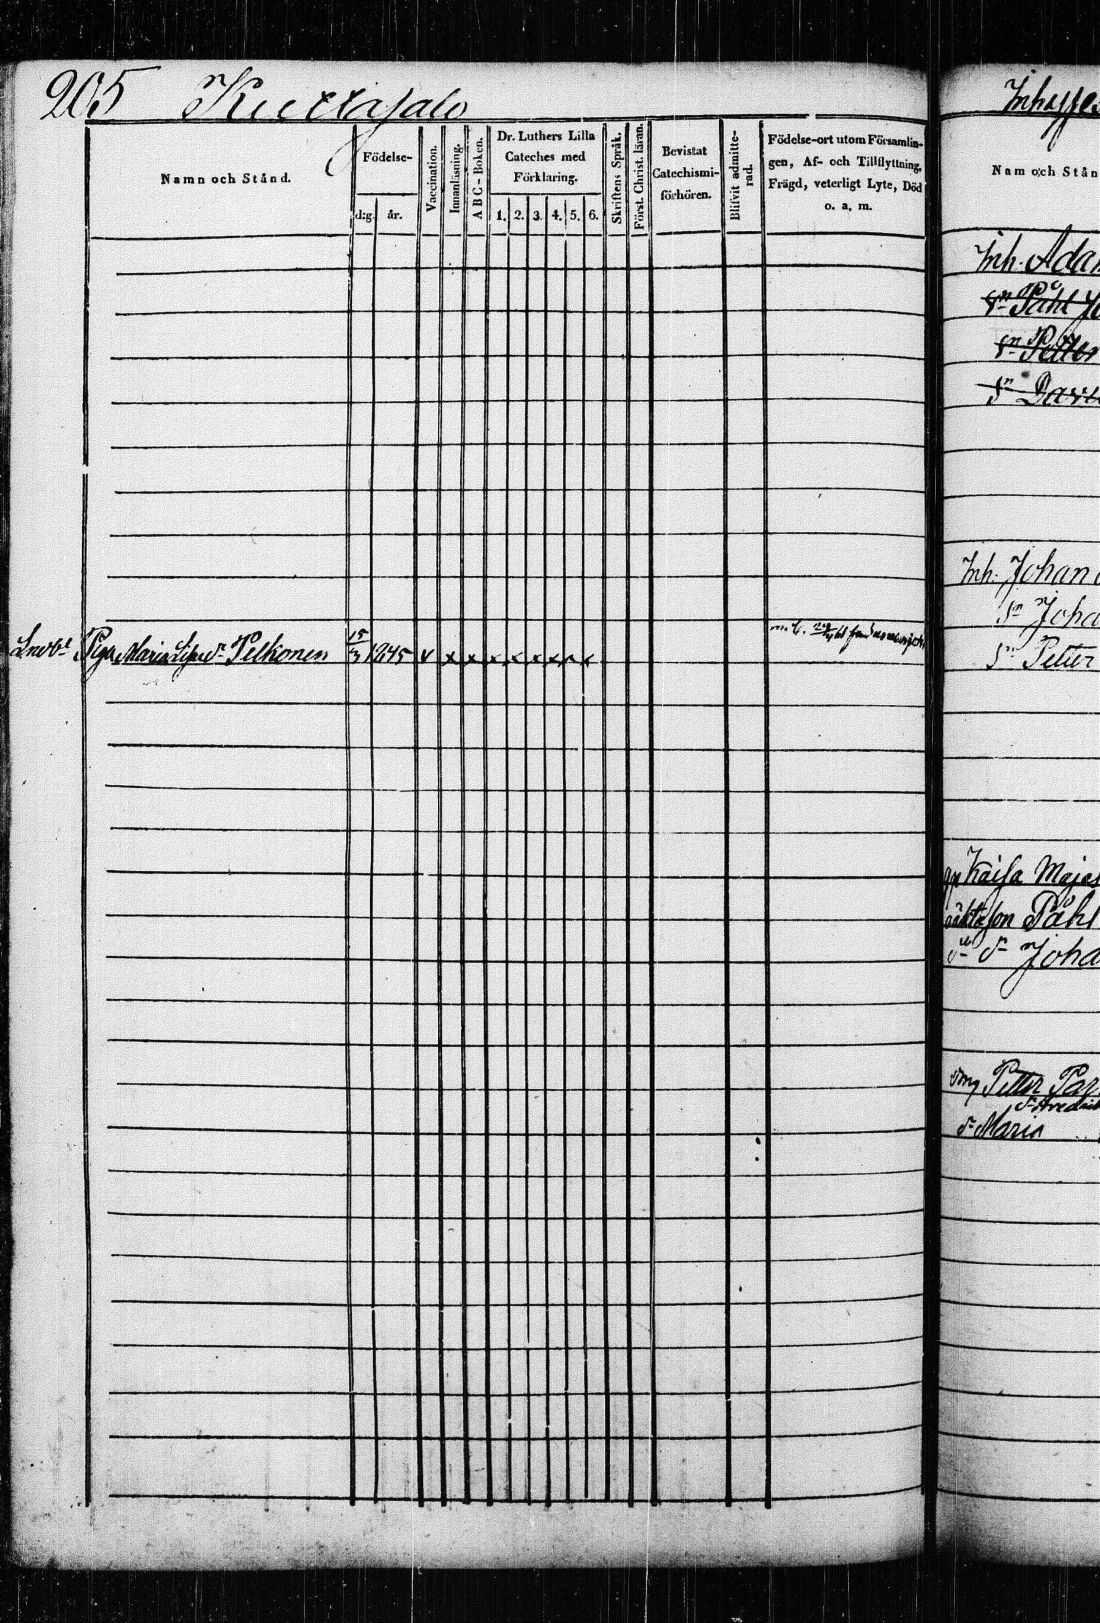 205 Kuttajalo
Namn och Stånd.
Födelse-
d:g. år.
Vaccination.
Innanläsning.
ABC-Boken.
Dr. Luthers Lilla
Cateches med
Förklaring.
1. 2. 3. 4. 5. 6.
Skriftens Språk.
Först. Christ. läran.
Bevistat
Catechismi-
förhören.
Blifvit admitte-
rad.
Födelse-ort utom Församlin-
gen, Af- och Tillflyttning,
Frägd, veterligt Lyte, Död
o. a. m.
Piga Maria Pelkonen 15/3 1845 v x x x x x x x x
Namn och Stån
Inh. Adam
Sn Påhl
Sn Petter
Sn
Inh. Johan
Sn Joha
Sn Petter
Kaisa Majas
son Påhl
Joha
Petter
Maria